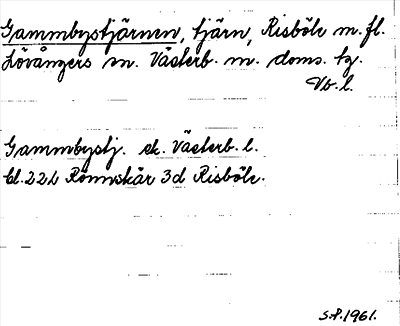 Gammbystjärnen, tjärn, Risböle m.fl.
Lövångers sn. Västerb. n. doms. tg.
Vb. l.
Gammbystj. ek. Västerb. l.
bl. 22L Rönnskär 3d Risböle.
S.P. 1961.